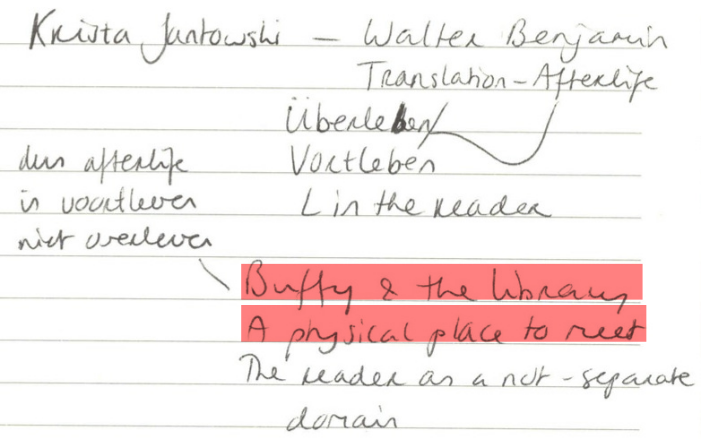 Krista Jantowski – Walter Benjamin
Translation – Afterlife
Überleben
Vortleben
L in the reader
dus afterlife
is voortleven
niet overleven
Buffy & the library
A physical place to meet
The reader as a not-separate
domain